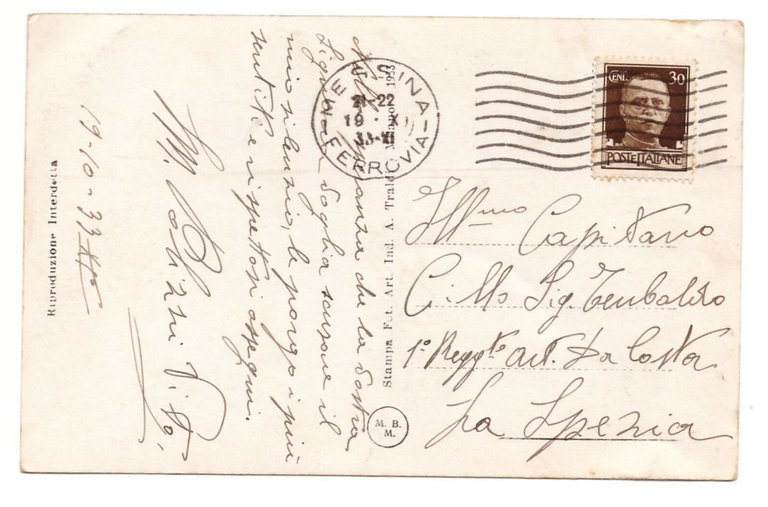 Nella speranza che la Sostra
Signoria voglia scusare il
mio silenzio, le porgo i più
sentiti e rispettosi ossequi.
Vito,
19-10-33 XI°
Riproduzione Interdetta
Stampa Fot. Art. Ind. A. Traldi Milano 1933
M. B.
M.
MESSINA
21-22
19 X
33-XI
FERROVIA
CENT. 30
POSTE ITALIANE
Ill.mo Capitano
Cillo Sig. Teubaldo
1° Regg.to art. Da Costa
La Spezia